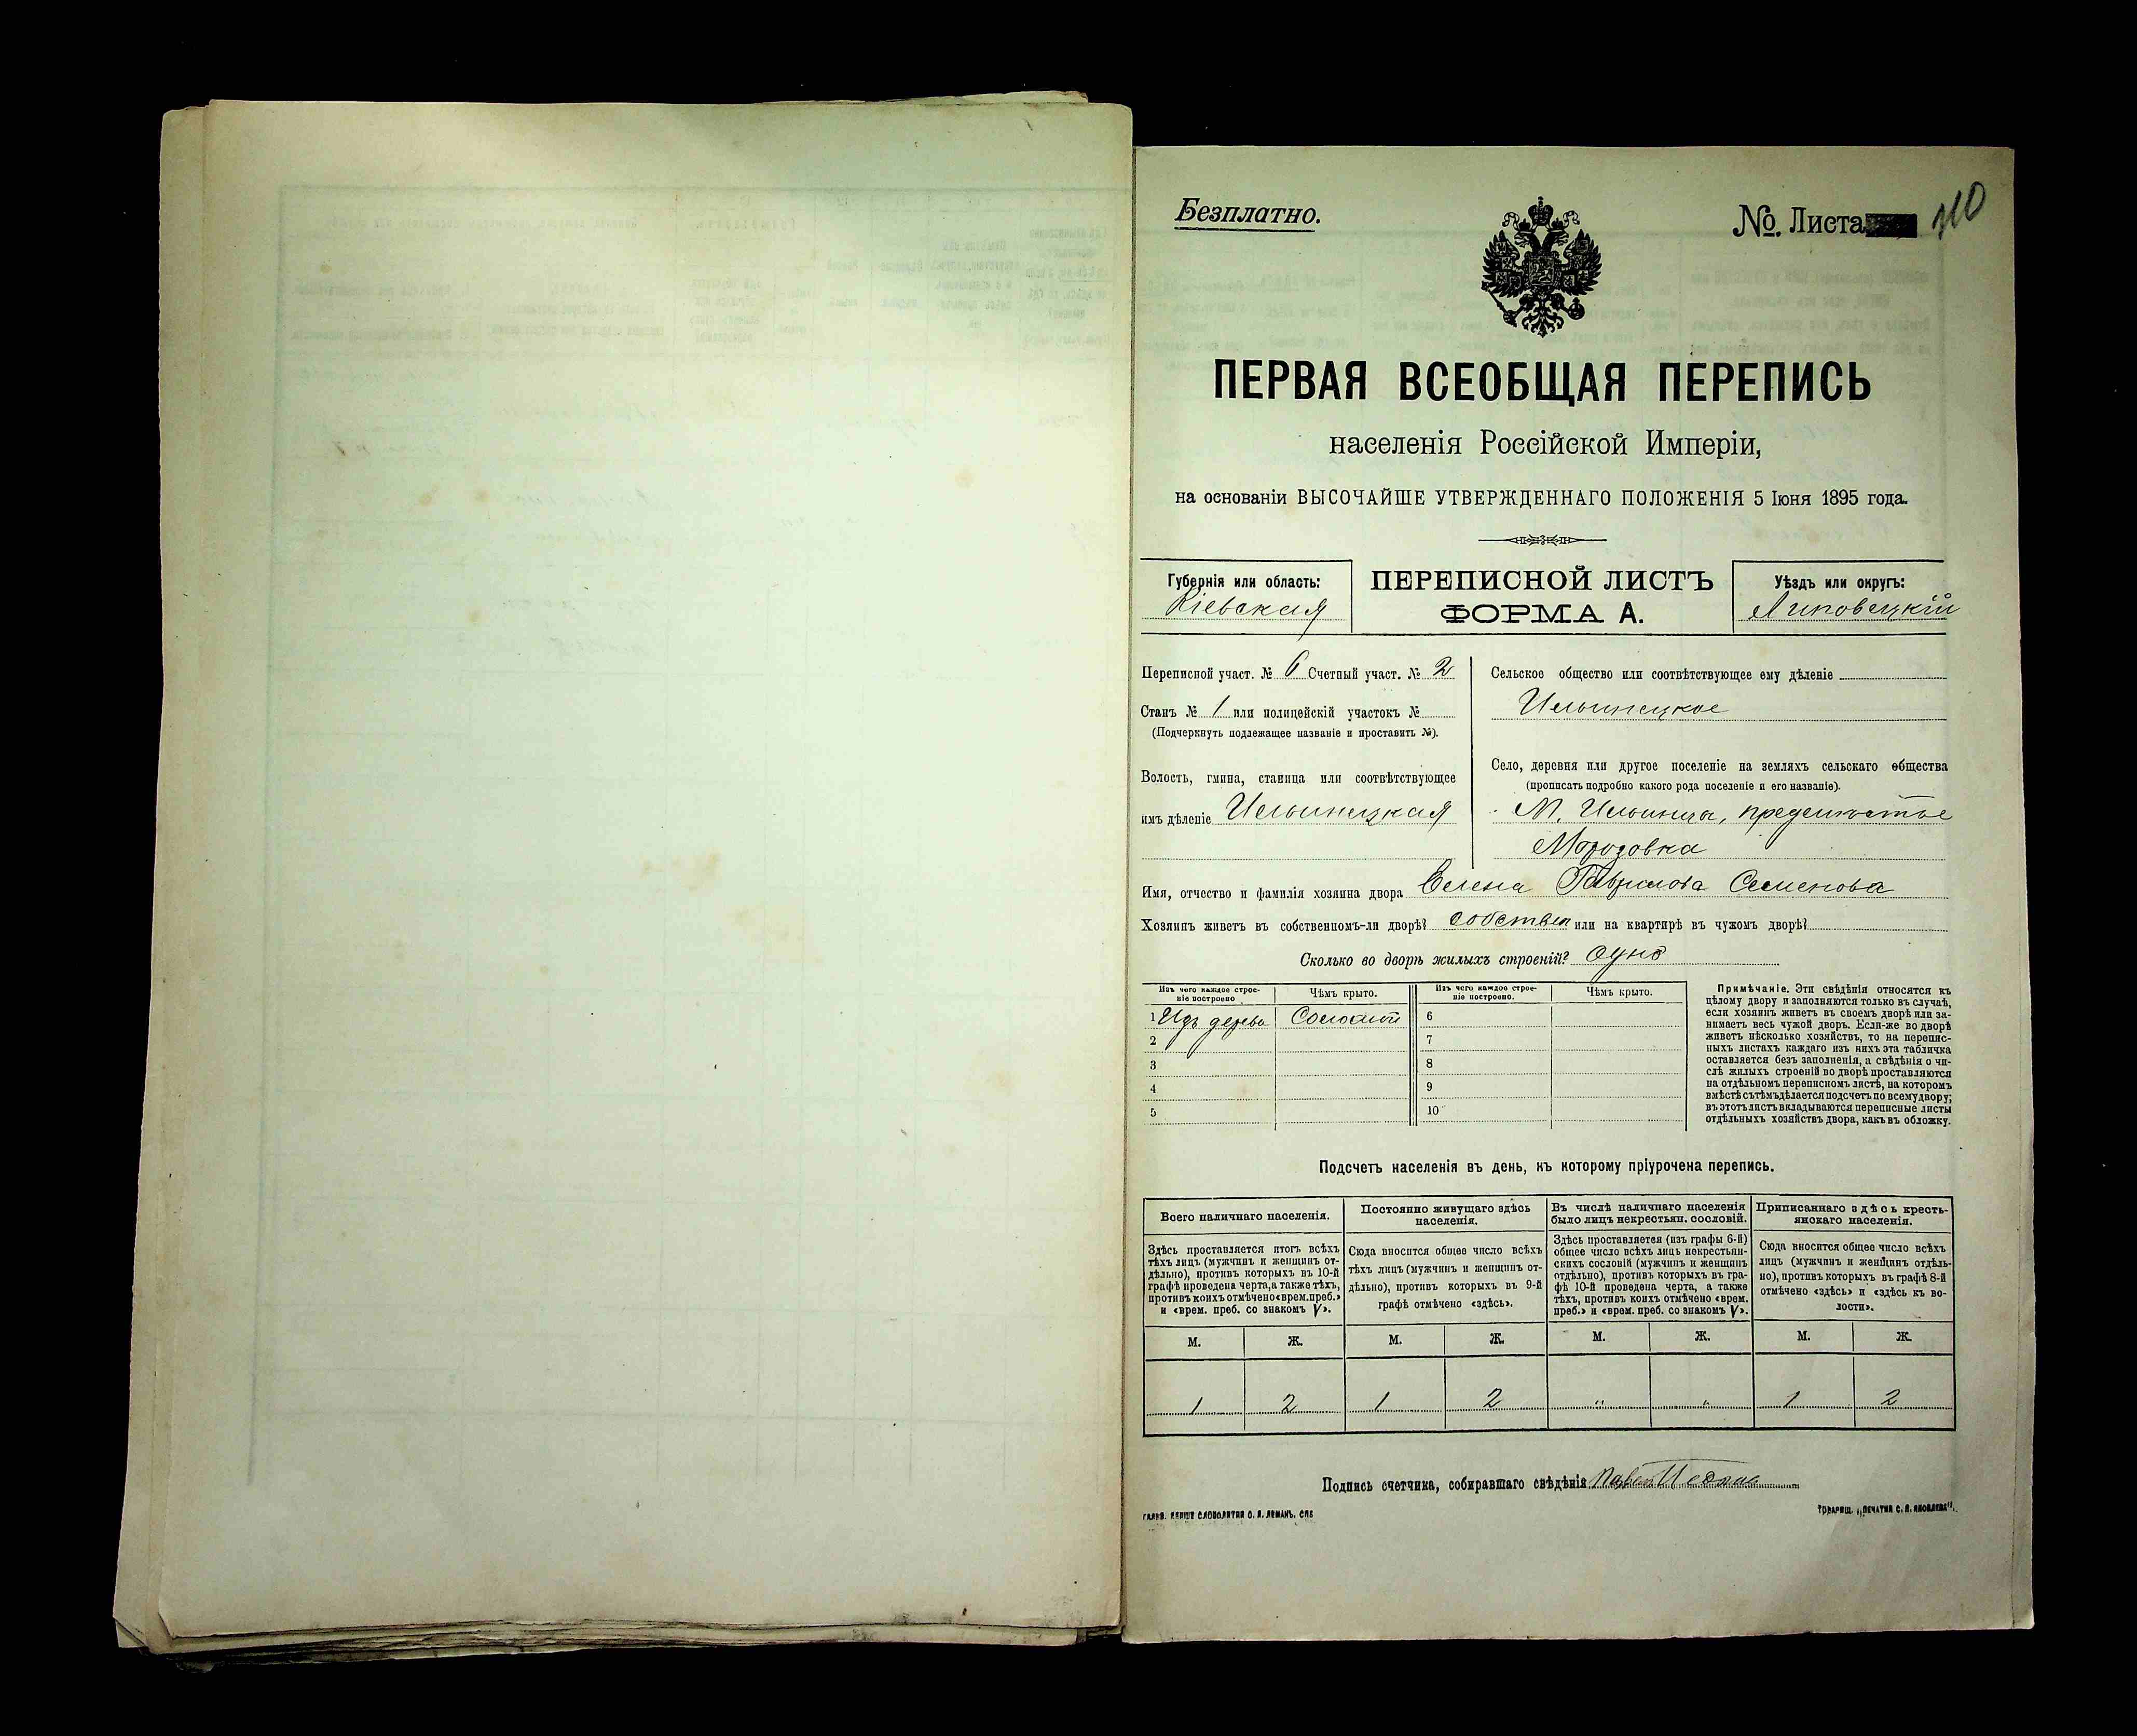 Безплатно.
№. Листа 710
ПЕРВАЯ ВСЕОБЩАЯ ПЕРЕПИСЬ
населенія Россійской Имперіи,
на основаніи ВЫСОЧАЙШЕ УТВЕРЖДЕННАГО ПОЛОЖЕНІЯ 5 Іюня 1895 года.
Губернія или область:
Кіевская
ПЕРЕПИСНОЙ ЛИСТЪ
ФОРМА А.
Уѣздъ или округъ:
Липовецкій
Переписной участ. № 6 Счетный участ. № 2
Станъ № 1 или полицейскій участокъ №
(Подчеркнуть подлежащее названіе и проставить №).
Волость, гмина, станица или соотвѣтствующее
имъ дѣленіе Ильинецкая
Сельское общество или соотвѣтствующее ему дѣленіе
Ильинецкое
Село, деревня или другое поселеніе на земляхъ сельскаго общества
(прописать подробно какого рода поселеніе и его названіе).
М. Ильинца, предмѣстье
Морозовка
Имя, отчество и фамилія хозяина двора Елена Гаврилова Семенова
Хозяинъ живетъ въ собственномъ-ли дворѣ? собствен или на квартирѣ въ чужомъ дворѣ?
Сколько во дворѣ жилыхъ строеній? Одно
Изъ чего каждое строе-
ніе построено
Чѣмъ крыто.
Изъ чего каждое строе-
ніе построено.
Чѣмъ крыто.
1 Изъ дерева Соломой 6
2 7
3 8
4 9
5 10
Примѣчаніе. Эти свѣдѣнія относятся къ
цѣлому двору и заполняются только въ случаѣ,
если хозяинъ живетъ въ своемъ дворѣ или за-
нимаетъ весь чужой дворъ. Если-же во дворѣ
живетъ нѣсколько хозяйствъ, то на перепис-
ныхъ листахъ каждаго изъ нихъ эта табличка
оставляется безъ заполненія, а свѣдѣнія о чи-
слѣ жилыхъ строеній во дворѣ проставляются
на отдѣльномъ переписномъ листѣ, на которомъ
вмѣстѣ съ тѣмъ дѣлается подсчетъ по всему двору;
въ этотъ листъ вкладываются переписные листы
отдѣльныхъ хозяйствъ двора, какъ въ обложку.
Подсчетъ населенія въ день, къ которому пріурочена перепись.
Всего наличнаго населенія.
Постоянно живущаго здѣсь
населенія.
Въ числѣ наличнаго населенія
было лицъ некрестьян. сословій.
Приписаннаго здѣсь кресть-
янскаго населенія.
Здѣсь проставляется итогъ всѣхъ
тѣхъ лицъ (мужчинъ и женщинъ от-
дѣльно), противъ которыхъ въ 10-й
графѣ проведена черта, а также тѣхъ,
противъ коихъ отмѣчено «врем. преб.»
и «врем. преб. со знакомъ V».
Сюда вносится общее число всѣхъ
тѣхъ лицъ (мужчинъ и женщинъ от-
дѣльно), противъ которыхъ въ 9-й
графѣ отмѣчено «здѣсь».
Здѣсь проставляется (изъ графы 6-й)
общее число всѣхъ лицъ некрестьян-
скихъ сословій (мужчинъ и женщинъ
отдѣльно), противъ которыхъ въ гра-
фѣ 10-й проведена черта, а также
тѣхъ, противъ коихъ отмѣчено «врем.
преб.» и «врем. преб. со знакомъ V».
Сюда вносится общее число всѣхъ
лицъ (мужчинъ и женщинъ отдѣль-
но), противъ которыхъ въ графѣ 8-й
отмѣчено «здѣсь» и «здѣсь къ во-
лости».
М. Ж. М. Ж. М. Ж. М. Ж.
1 2 1 2 " " 1 2
Подпись счетчика, собиравшаго свѣдѣнія Павел
СЛОВОЛИТНЯ О. И. ЛЕМАНЪ. СПБ
ТОВАРИЩ. „ПЕЧАТНЯ С. П. ЯКОВЛЕВА".